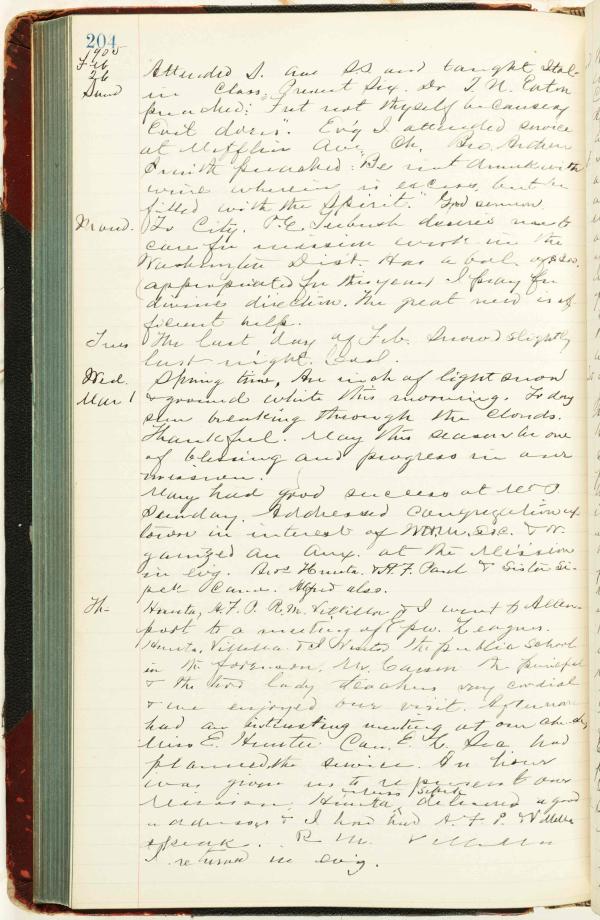 204
1905
Feb
26
Sund
Attended S. and S.S. and taught Ital-
ian Class. Present Six. Dr. T. N. Eaton
preached: "Fret not thyself because of
Evil doers". Ev'g I attended service
at Mifflin Ave Ch. Bro. Andrew
Smith preached: "Be not drunk with
wine wherein is excess, but be
filled with the Spirit." Good sermon.
Mond. To City. desires me to
care for mission work in the
Washington Dist. Has a bal. of
appropriated for this year. I pray for
divine direction. The great need is ef-
ficient help.
Tues The last day of Feb. Snowed slightly
last night. Cool.
Wed. Spring time, An inch of light snow
Mar 1 & ground white this morning. Today
sun breaking through the clouds.
Thankful. May this season be one
of blessing and progress in our
mission.
Mary had good success at
Sunday. Addressed Congregation
in interest of W.H.M. Soc. & or-
ganized an Aux. at the Mission
in ev'g. Bros Hunter & A. F. Paul & Sister
came. Alfred also.
Th- Hunter, A. F. P. R. M. Villella & I went to
port to a meeting of Epw. League.
Hunter, Villella & I visited the public School
in the forenoon, Mr. Carson the principal
& the two lady teachers very cordial
& we enjoyed our visit. Afternoon
had an interesting meeting at our
Miss E. Hunter had
planned the service. An hour
was given us to represent our
mission. Hunter, delivered a good
address & I had A. F. P. & Villella
speak. R. M. Villella
I returned in ev'g.